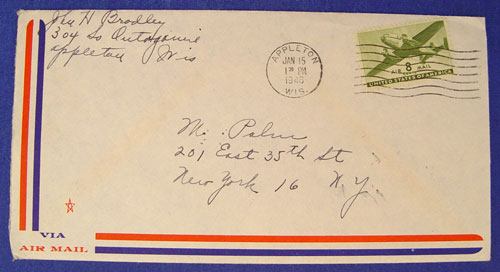 John H Bradley
304 So Outagamie
Appleton Wis
APPLETON
JAN 15
1 30 PM
1946
WIS.
8¢
AIR MAIL
UNITED STATES OF AMERICA
Mr. Palmer
201 East 35th St
New York 16 N Y
VIA
AIR MAIL